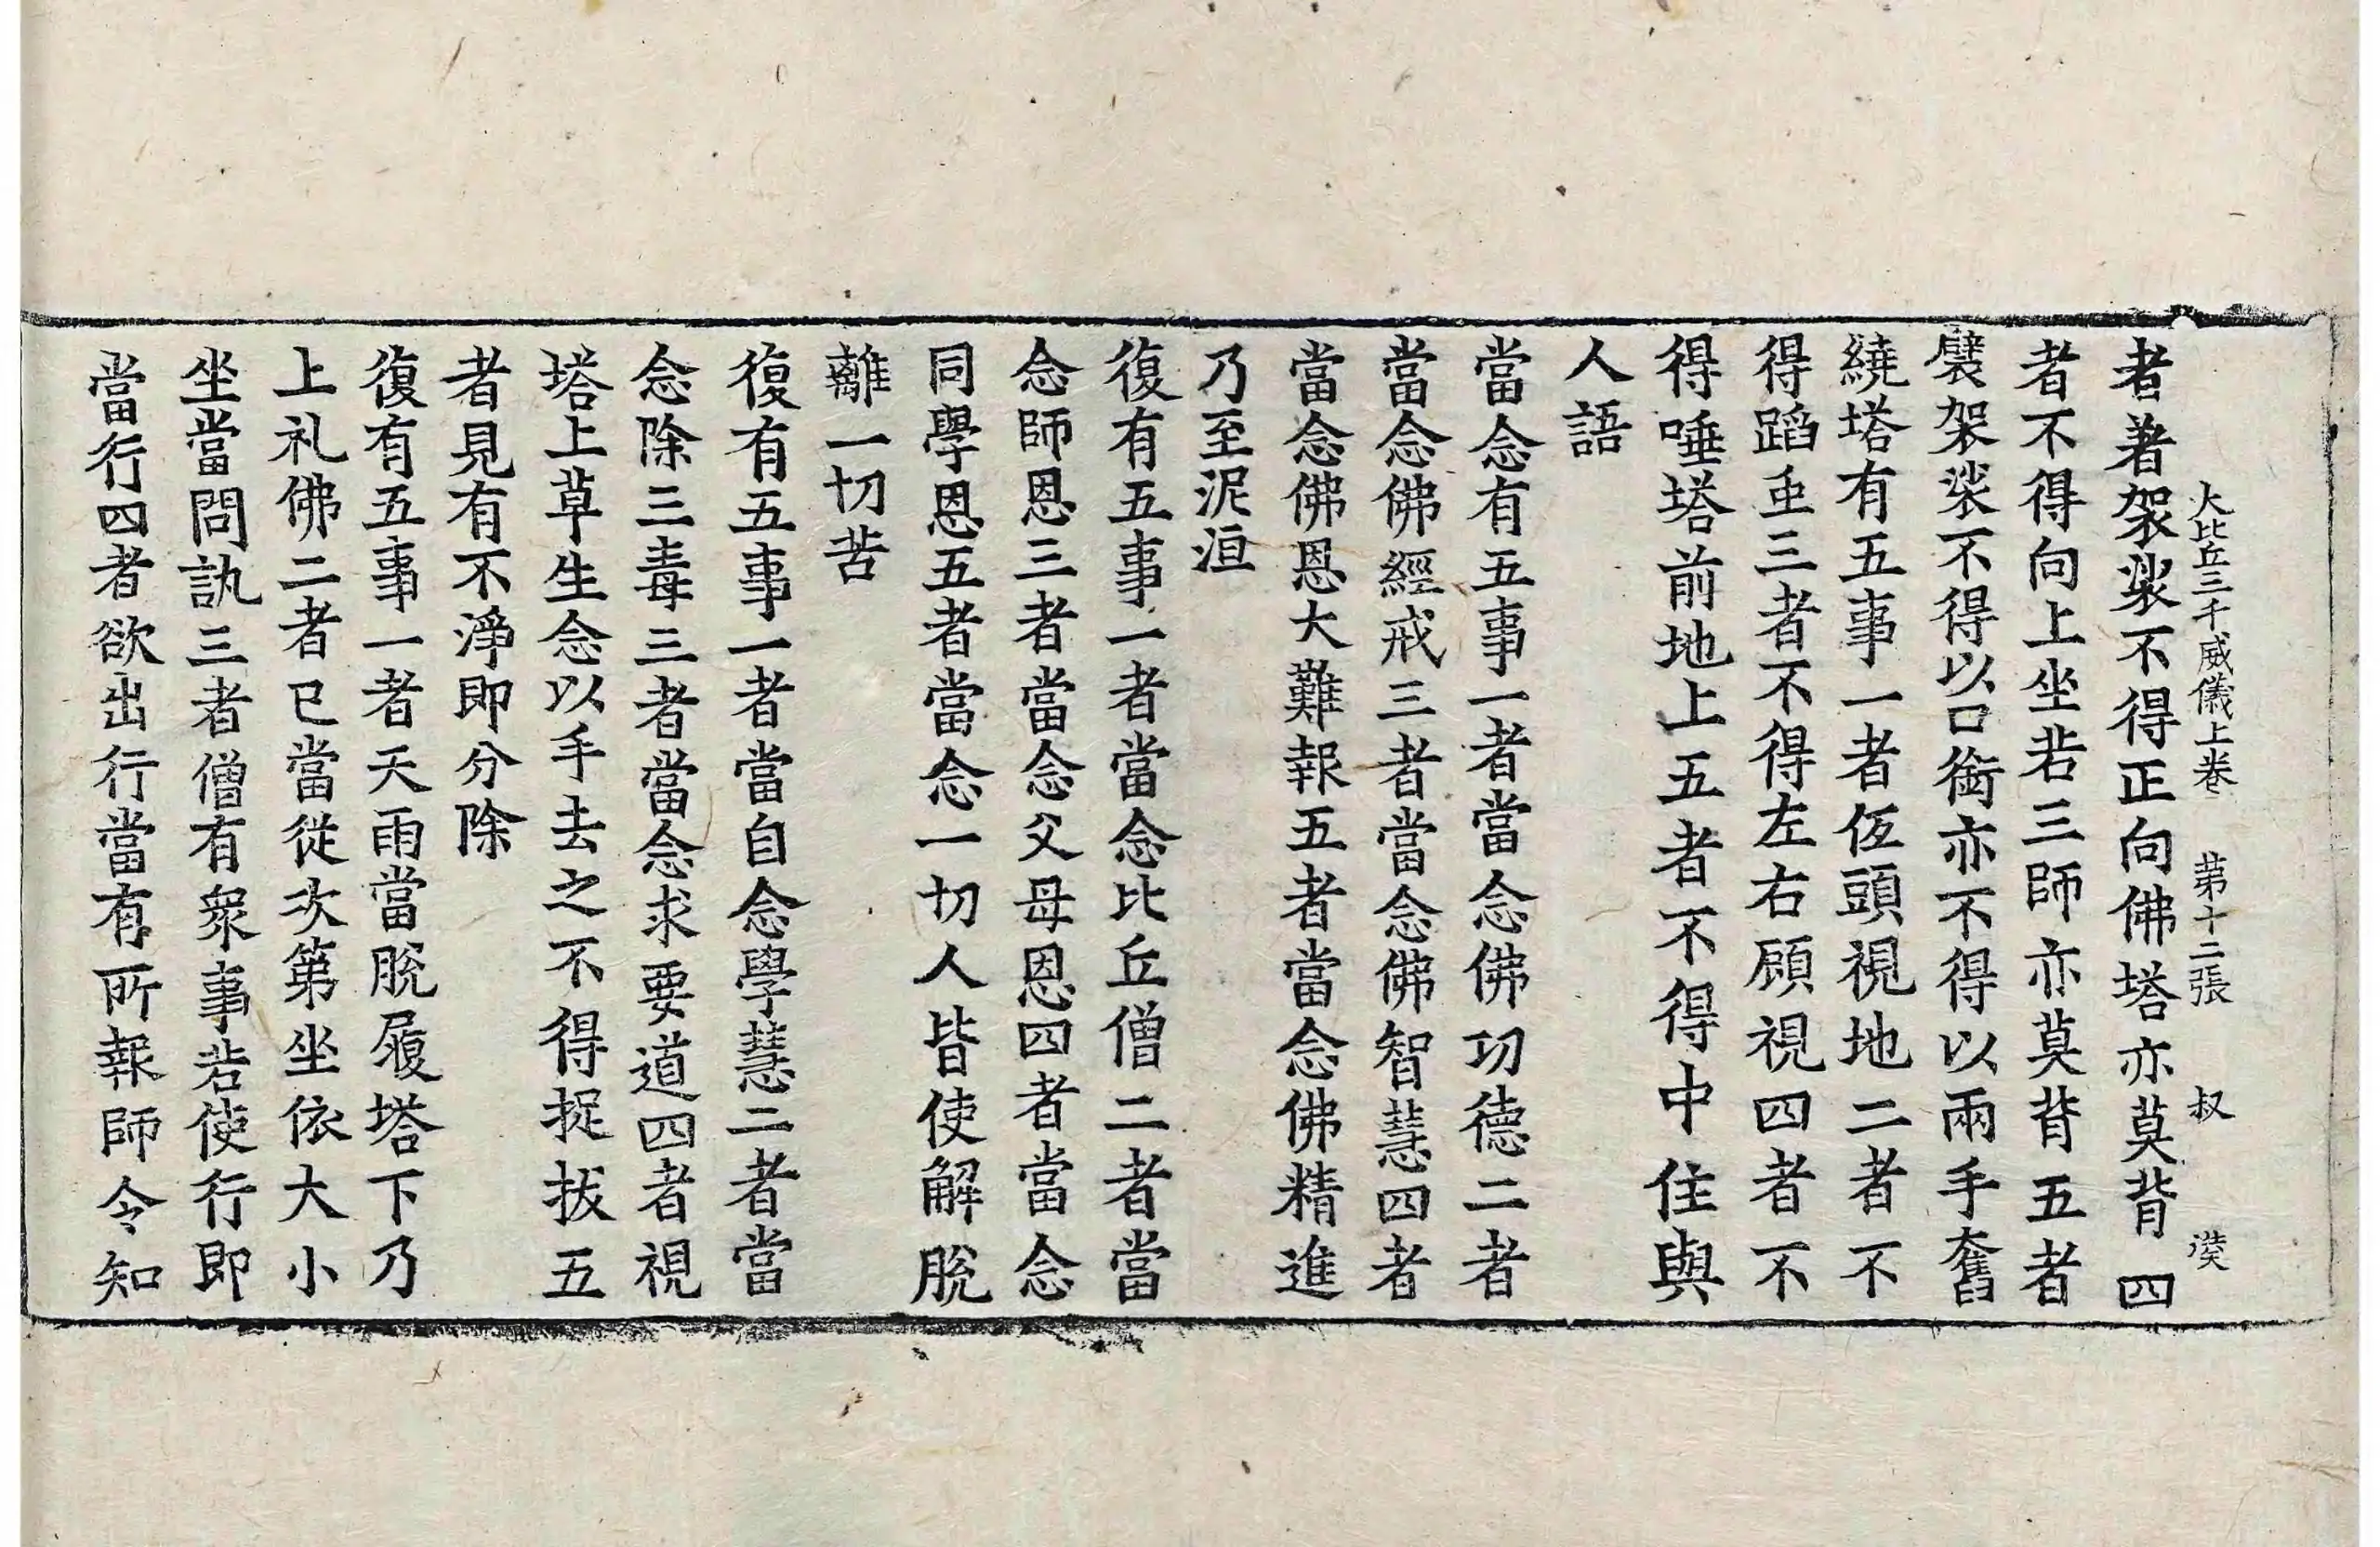 大比丘三千威儀上卷　第十二張　叔
者著袈裟不得正向佛塔亦莫背四
者不得向上坐若三師亦莫背五者
襞袈裟不得以口銜亦不得以兩手奮
繞塔有五事一者伍頭視地二者不
得蹈虫三者不得左右顧視四者不
得唾塔前地上五者不得中住與
人語
當念有五事一者當念佛功德二者
當念佛經戒三者當念佛智慧四者
當念佛恩大難報五者當念佛精進
乃至泥洹
復有五事一者當念比丘僧二者當
念師恩三者當念父母恩四者當念
同學恩五者當念一切人皆使解脫
離一切苦
復有五事一者當自念學慧二者當
念除三毒三者當念求要道四者視
塔上草生念以手去之不得捉拔五
者見有不淨即分除
復有五事一者天雨當脫履塔下乃
上礼佛二者已當從次第坐依大小
坐當問訊三者僧有衆事若使行即
當行四者欲出行當有所報師令知